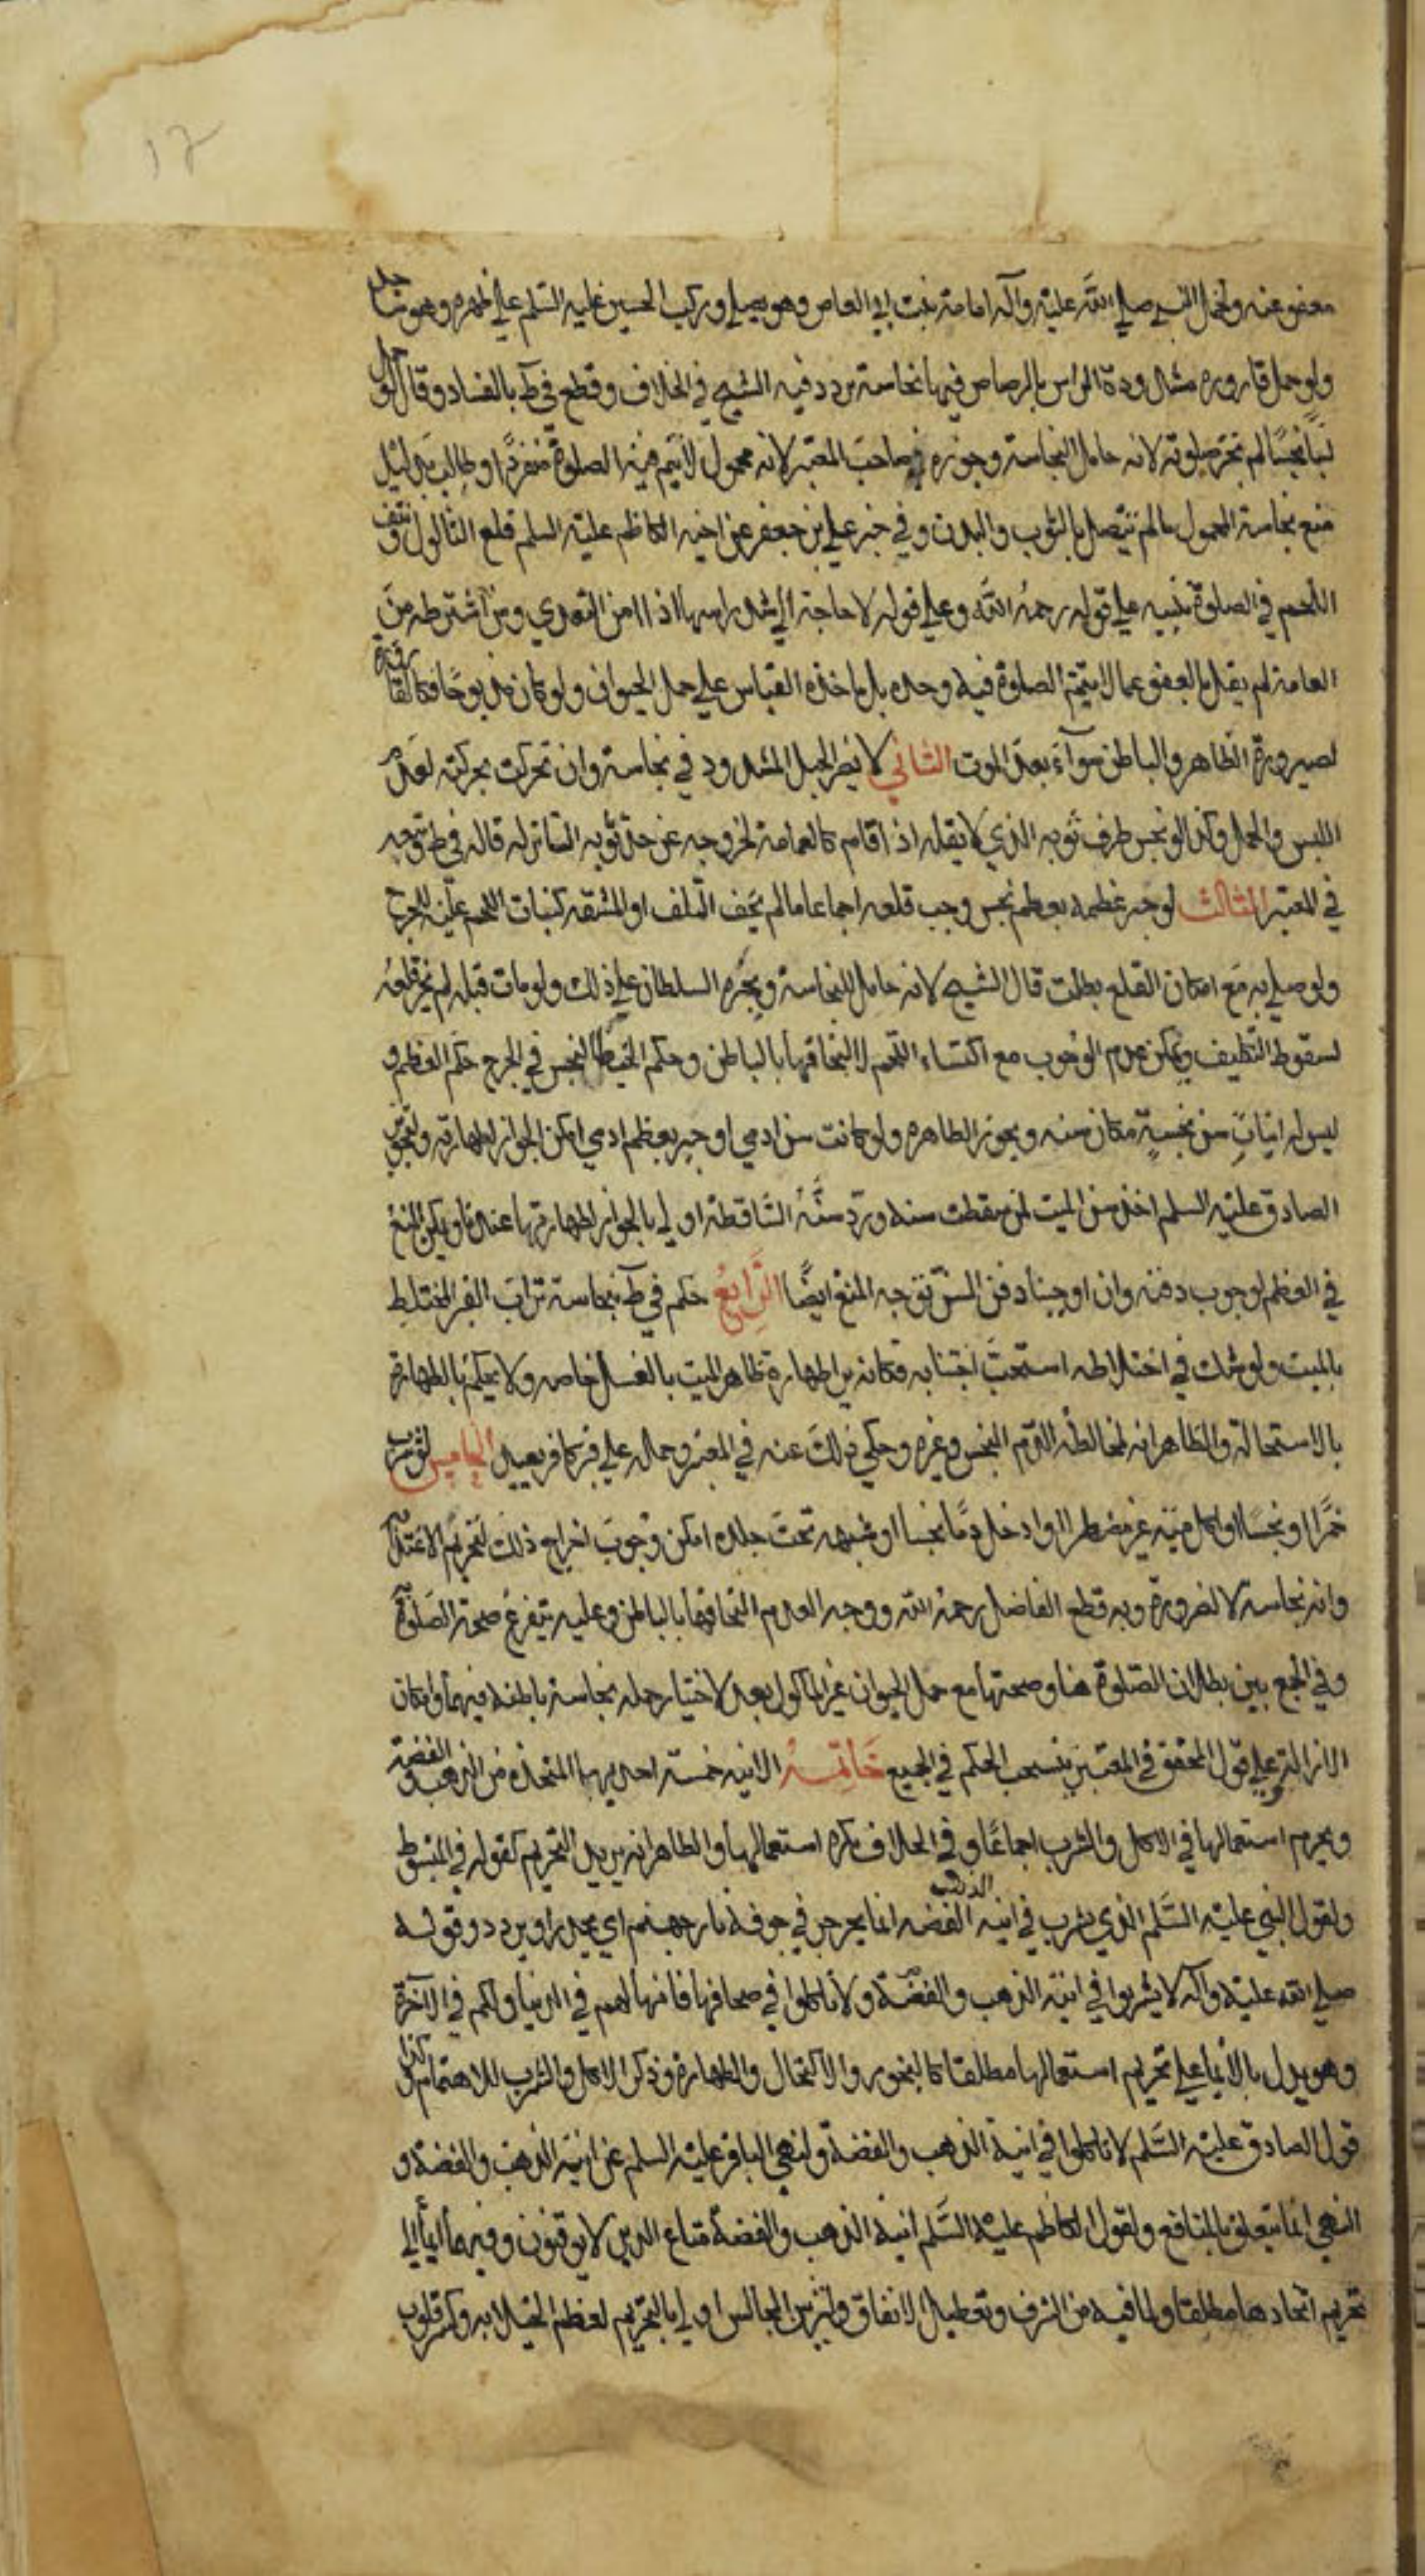 17
معفو عنه ولحمل النبي صلى الله عليه وآله امامة بنت ابي العاص وهو يصلي وركب الحسين عليه السلم على ظهره وهو ساجد
ولو حمل قارورة مشدودة الراس بالرصاص فيها نجاسة تردد فيه الشيخ في الخلاف وقطع في ط بالفساد وقال لو حمل
لبنا نجسا لم تجز صلوته لانه حامل النجاسة وجوزه صاحب المعتبر لانه محمول لا تتم فيه الصلوة منفردا وطالب بدليل
منع نجاسة المحمول ما لم تتصل بالثوب والبدن وفي خبر علي بن جعفر عن اخيه الكاظم عليه السلم قلع الثالول ونتف
اللحم في الصلوة تنبيه على قوله رحمه الله وعلى قوله لا حاجة الى شد راسها اذا امن التعدي ومن اشترطه من
العامة لم يقل بالعفو عما لا تتم الصلوة فيه وحده بل ماخذه القياس على حمل الحيوان ولو كان مذبوحا فكالقارورة
لصيرورة الظاهر والباطن سواء بعد الموت الثاني لا يضر الحبل المشدود في نجاسة وان تحركت بحركته لعدم
اللبس والحمل وكذا لو نجس طرف ثوبه الذي لا يقله اذا قام كالعمامة لخروجه عن حد ثوبه الساتر له قاله في ط وتبعه
في المعتبر الثالث لو جبر عظمه بعظم نجس وجب قلعه اجماعا ما لم يخف التلف او المشقة كنبات اللحم عليه للحرج
ولو صلى به مع امكان القلع بطلت قال الشيخ لانه حامل للنجاسة ويجبره السلطان على ذلك ولو مات قبله لم يجز قلعه
لسقوط التكليف ويمكن عدم الوجوب مع اكتساء اللحم لالتحاقها بالباطن وحكم الخيط النجس في الجرح حكم العظم و
ليس له اثبات سن نجسة مكان سنه ويجوز الطاهرة ولو كانت سن ادمي او جبر بعظم ادمي امكن الجواز لطهارته ولتجويز
الصادق عليه السلم اخذ سن الميت لمن سقطت سنه ورد سنه الساقطة اولى بالجواز لطهارتها عندنا ويمكن المنع
في العظم لوجوب دفنه وان اوجبنا دفن السن توجه المنع ايضا الرابع حكم في ط بنجاسة تراب القبر المختلط
بالميت ولو شك في اختلاطه استحب اجتنابه فكانه يرا طهارة ظاهر الميت بالغسل خاصة ولا يحكم بالطهارة
بالاستحالة والظاهر انه لمخالطة الدم النجس وغيره وحكي ذلك عنه في المعتبر وحمله على قبر كافر بعيد الخامس لو شرب
خمرا او نجسا او اكل ميتة غير مضطر او ادخل دما نجسا او شبهه تحت جلده امكن وجوب اخراج ذلك لتحريم الاغتذاء
وانه نجاسة لا لضرورة وبه قطع الفاضل رحمه الله ووجه العدم التحاقها بالباطن وعليه يتفرع صحة الصلوة
وفي الجمع بين بطلان الصلوة هنا وصحتها مع حمل الحيوان غير الماكول بعد لاختيار حمله نجاسة باطنة فيهما وامكان
الازالة وعلى قول المحقق في المعتبر ينسحب الحكم في الجميع خاتمة الانية خمسة احديها المتخذة من الذهب والفضة
ويحرم استعمالها في الاكل والشرب اجماعا وفي الخلاف يكره استعمالها والظاهر انه يريد التحريم كقوله في المبسوط
ولقول النبي عليه السلم الذي يشرب في انية الذهب الفضة انما يجرجر في جوفه نار جهنم اي يحدر او يردد وقوله
صلى الله عليه وآله لا يشربوا في انية الذهب والفضة ولا تاكلوا في صحافها فانها لهم في الدنيا ولكم في الآخرة
وهو يدل بالايماء على تحريم استعمالها مطلقا كالبخور والاكتحال والطهارة وذكر الاكل والشرب للاهتمام وكذا
قول الصادق عليه السلم لا تاكلوا في انية الذهب والفضة ولنهي الباقر عليه السلم عن انية الذهب والفضة و
النهي انما يتعلق بالمنافع ولقول الكاظم عليه السلم انية الذهب والفضة متاع الذين لا يوقنون وفيهما ايماء الى
تحريم اتخاذها مطلقا ولما فيه من السرف وتعطيل الانفاق وتزيين المجالس اولى بالتحريم لعظم الخيلاء به وكسر قلوب